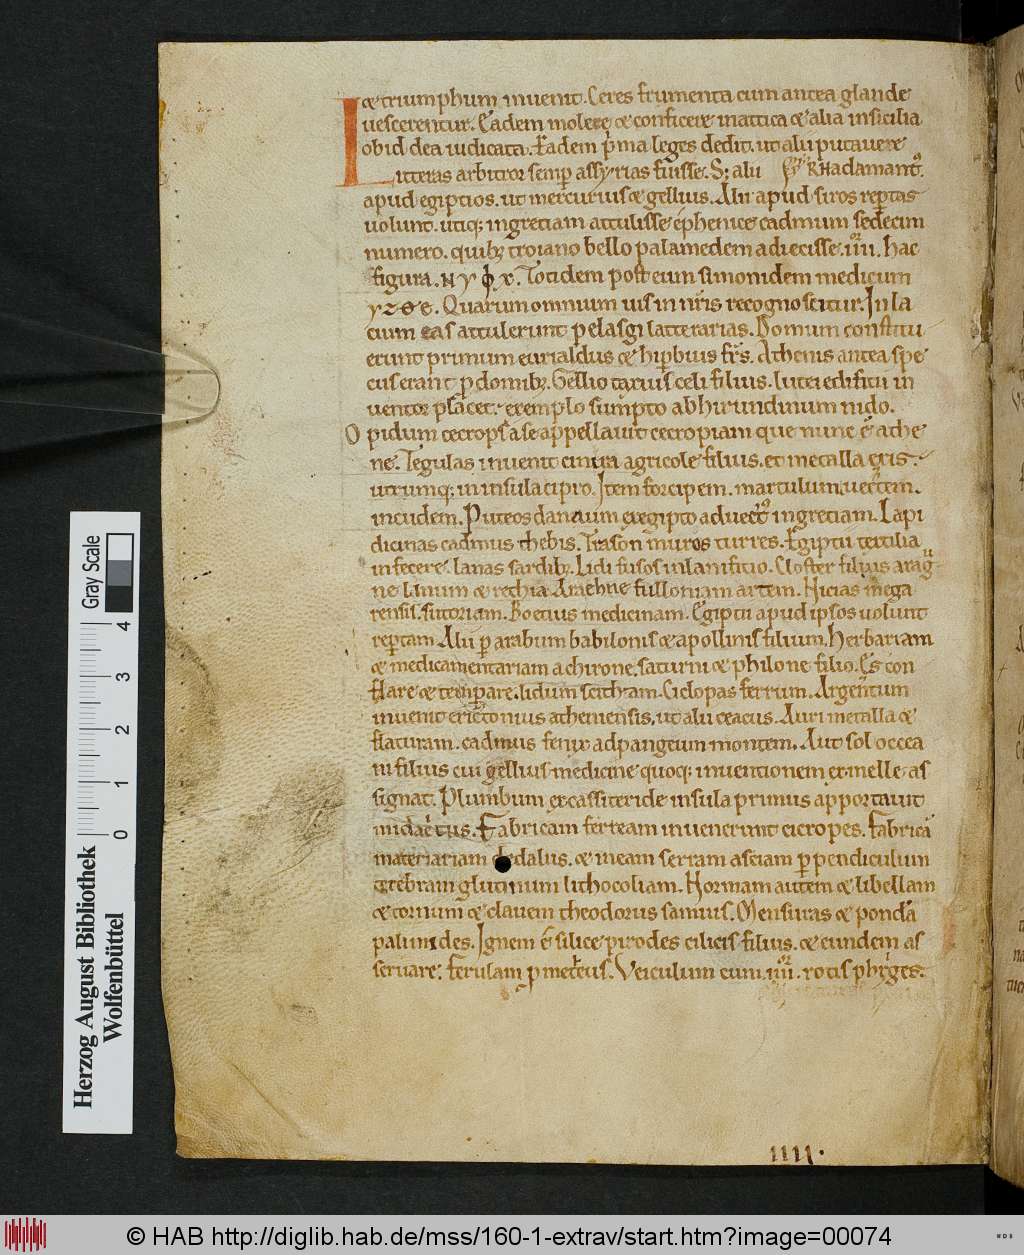 & triumphum inuenit. Ceres frumenta cum antea glande
uescerentur. Eadem molere & conficere inattica & alia insicilia
obid dea iudicata. Eadem pͥma leges dedit. ut alii putauere
Litteras arbitror semp̄ assyrias fuisse. S; alii RHadamantꝰ.
apud egiptios. ut mercurius & gellius. Alii apud siros rep̄tas
uolunt. utiq; ingreciam attulisse ephenice cadmum sedecim
numero. quibꝫ troiano bello palamedem adiecisse .iiii. hac
figura. N y ϕ x. Totidem post eum simonidem medicum
Quarum omnium uis in nr̄is recognoscitur. In la
cium eas attulerunt pelasgi latterarias. Domum constitu
erunt primum eurialdus & hip̄bius fr̄s. Athenis antea spe
cus erant p̱ domibꝫ. Gellio tarius celi filius. lutei edificii in
uentor placet. exemplo sumpto abhirundinum nido.
Opidum cecrops ase appellauit cecropiam que nunc ē athe
ne. Tegulas inuenit cinira agricole filius. et metalla eris.
utrumq; in insula cipro. Item forcipem. martulum. uectem.
incudem. Puteos danaum exegipto aduectꝰ ingreciam. Lapi
dicinas cadmus thebis. Trason muros turres. Egiptii textilia
infecere. lanas sardibꝫ. Lidi fusos in lanificio. Closter filius arag
ne linum & rechia Araehne fulloniam artem. Nicias mega
rensis. sutoriam. Boetius medicinam. Egiptii apud ipsos uolunt
rep̄tam. Alii p̱ arabum babilonis & apollinis filium. Herbariam
& medicamentariam achirone. saturni & philone filio. Es con
flare & temp̱are. lidum scitham. Ciclopas ferrum. Argentum
inuenit erictonius atheniensis. ut alii ceacus. Auri metalla &
flaturam. cadmus fenix ad pangeum montem. Aut sol occea
ni filius cui gellius medicine quoq; inuentionem ex melle as
signat. Plumbum excassiteride insula primus apportauit
midacitus. Fabricam ferream inuenerunt cicropes. Fabricā
materiariam dedalus. & ineam serram asciam p̱pendiculum
terebram glutinum lithocoliam. Normam autem & libellam
& tornum & clauem theodorus samius. Mensuras & pondā
palamides. Ignem ē silice pirodes cilicis filius. & eundem as
seruare. ferulam pͥmetheus. Veiculum cum .iiii. rotis phriges.
IIII.
Gray Scale
0 1 2 3 4
Herzog August Bibliothek
Wolfenbüttel
© HAB http://diglib.hab.de/mss/160-1-extrav/start.htm?image=00074